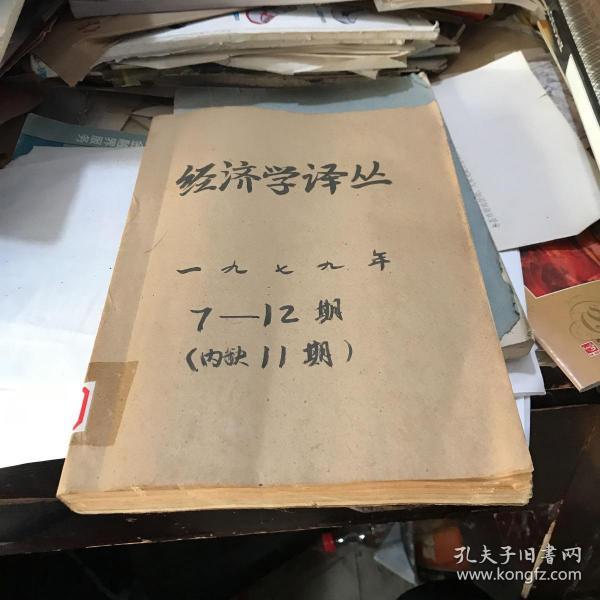 经济学译丛
一九七九年
7—12期
(内缺11期)
孔夫子旧書网
www.kongfz.com